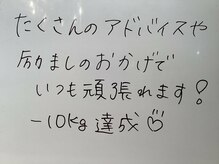 たくさんのアドバイスや
励ましのおかげで
いつも頑張れます!
-10kg 達成♡